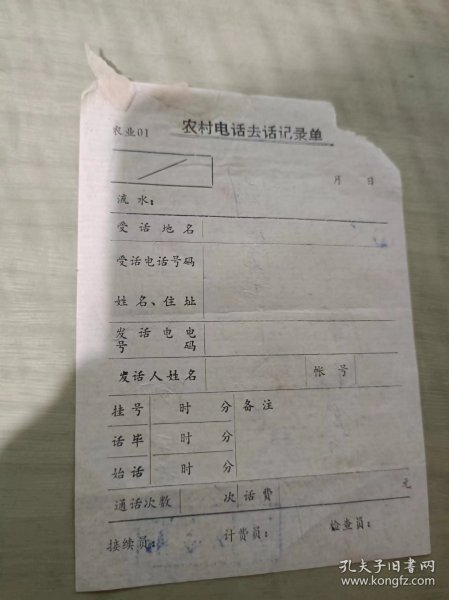 农业01 农村电话去话记录单
月 日
流水：
受话地名
受话电话号码
姓名、住址
发话电电
号 码
发话人姓名 帐号
挂号 时 分 备注
话毕 时 分
始话 时 分
通话次数 次 话费 元
接续员： 计费员： 检查员：
孔夫子旧书网
www.kongfz.com